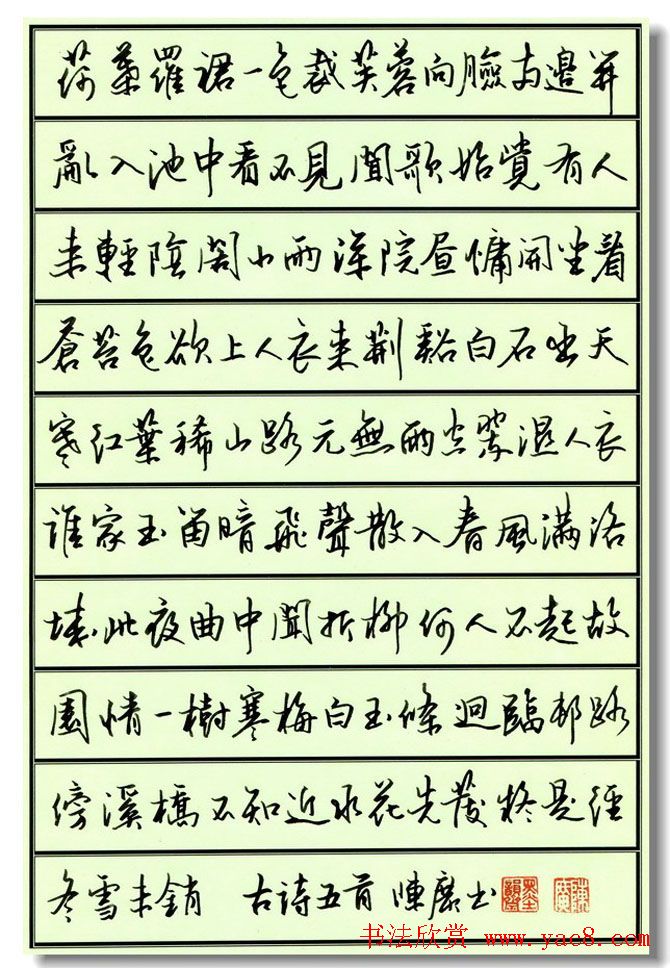 荷葉羅裙一色裁芙蓉向臉兩邊開
亂入池中看不見聞歌始覺有人
来輕陰閣小雨深院昼慵開坐看
蒼苔色欲上人衣来荊谿白石出天
寒红葉稀山路元無雨空翠濕人衣
誰家玉笛暗飛聲散入春風滿洛
城此夜曲中聞折柳何人不起故
園情一樹寒梅白玉條迥臨邨路
傍溪橋不知近水花先發疑是經
冬雪未銷 古詩五首 陳 书
书法欣赏 www.yac8.com